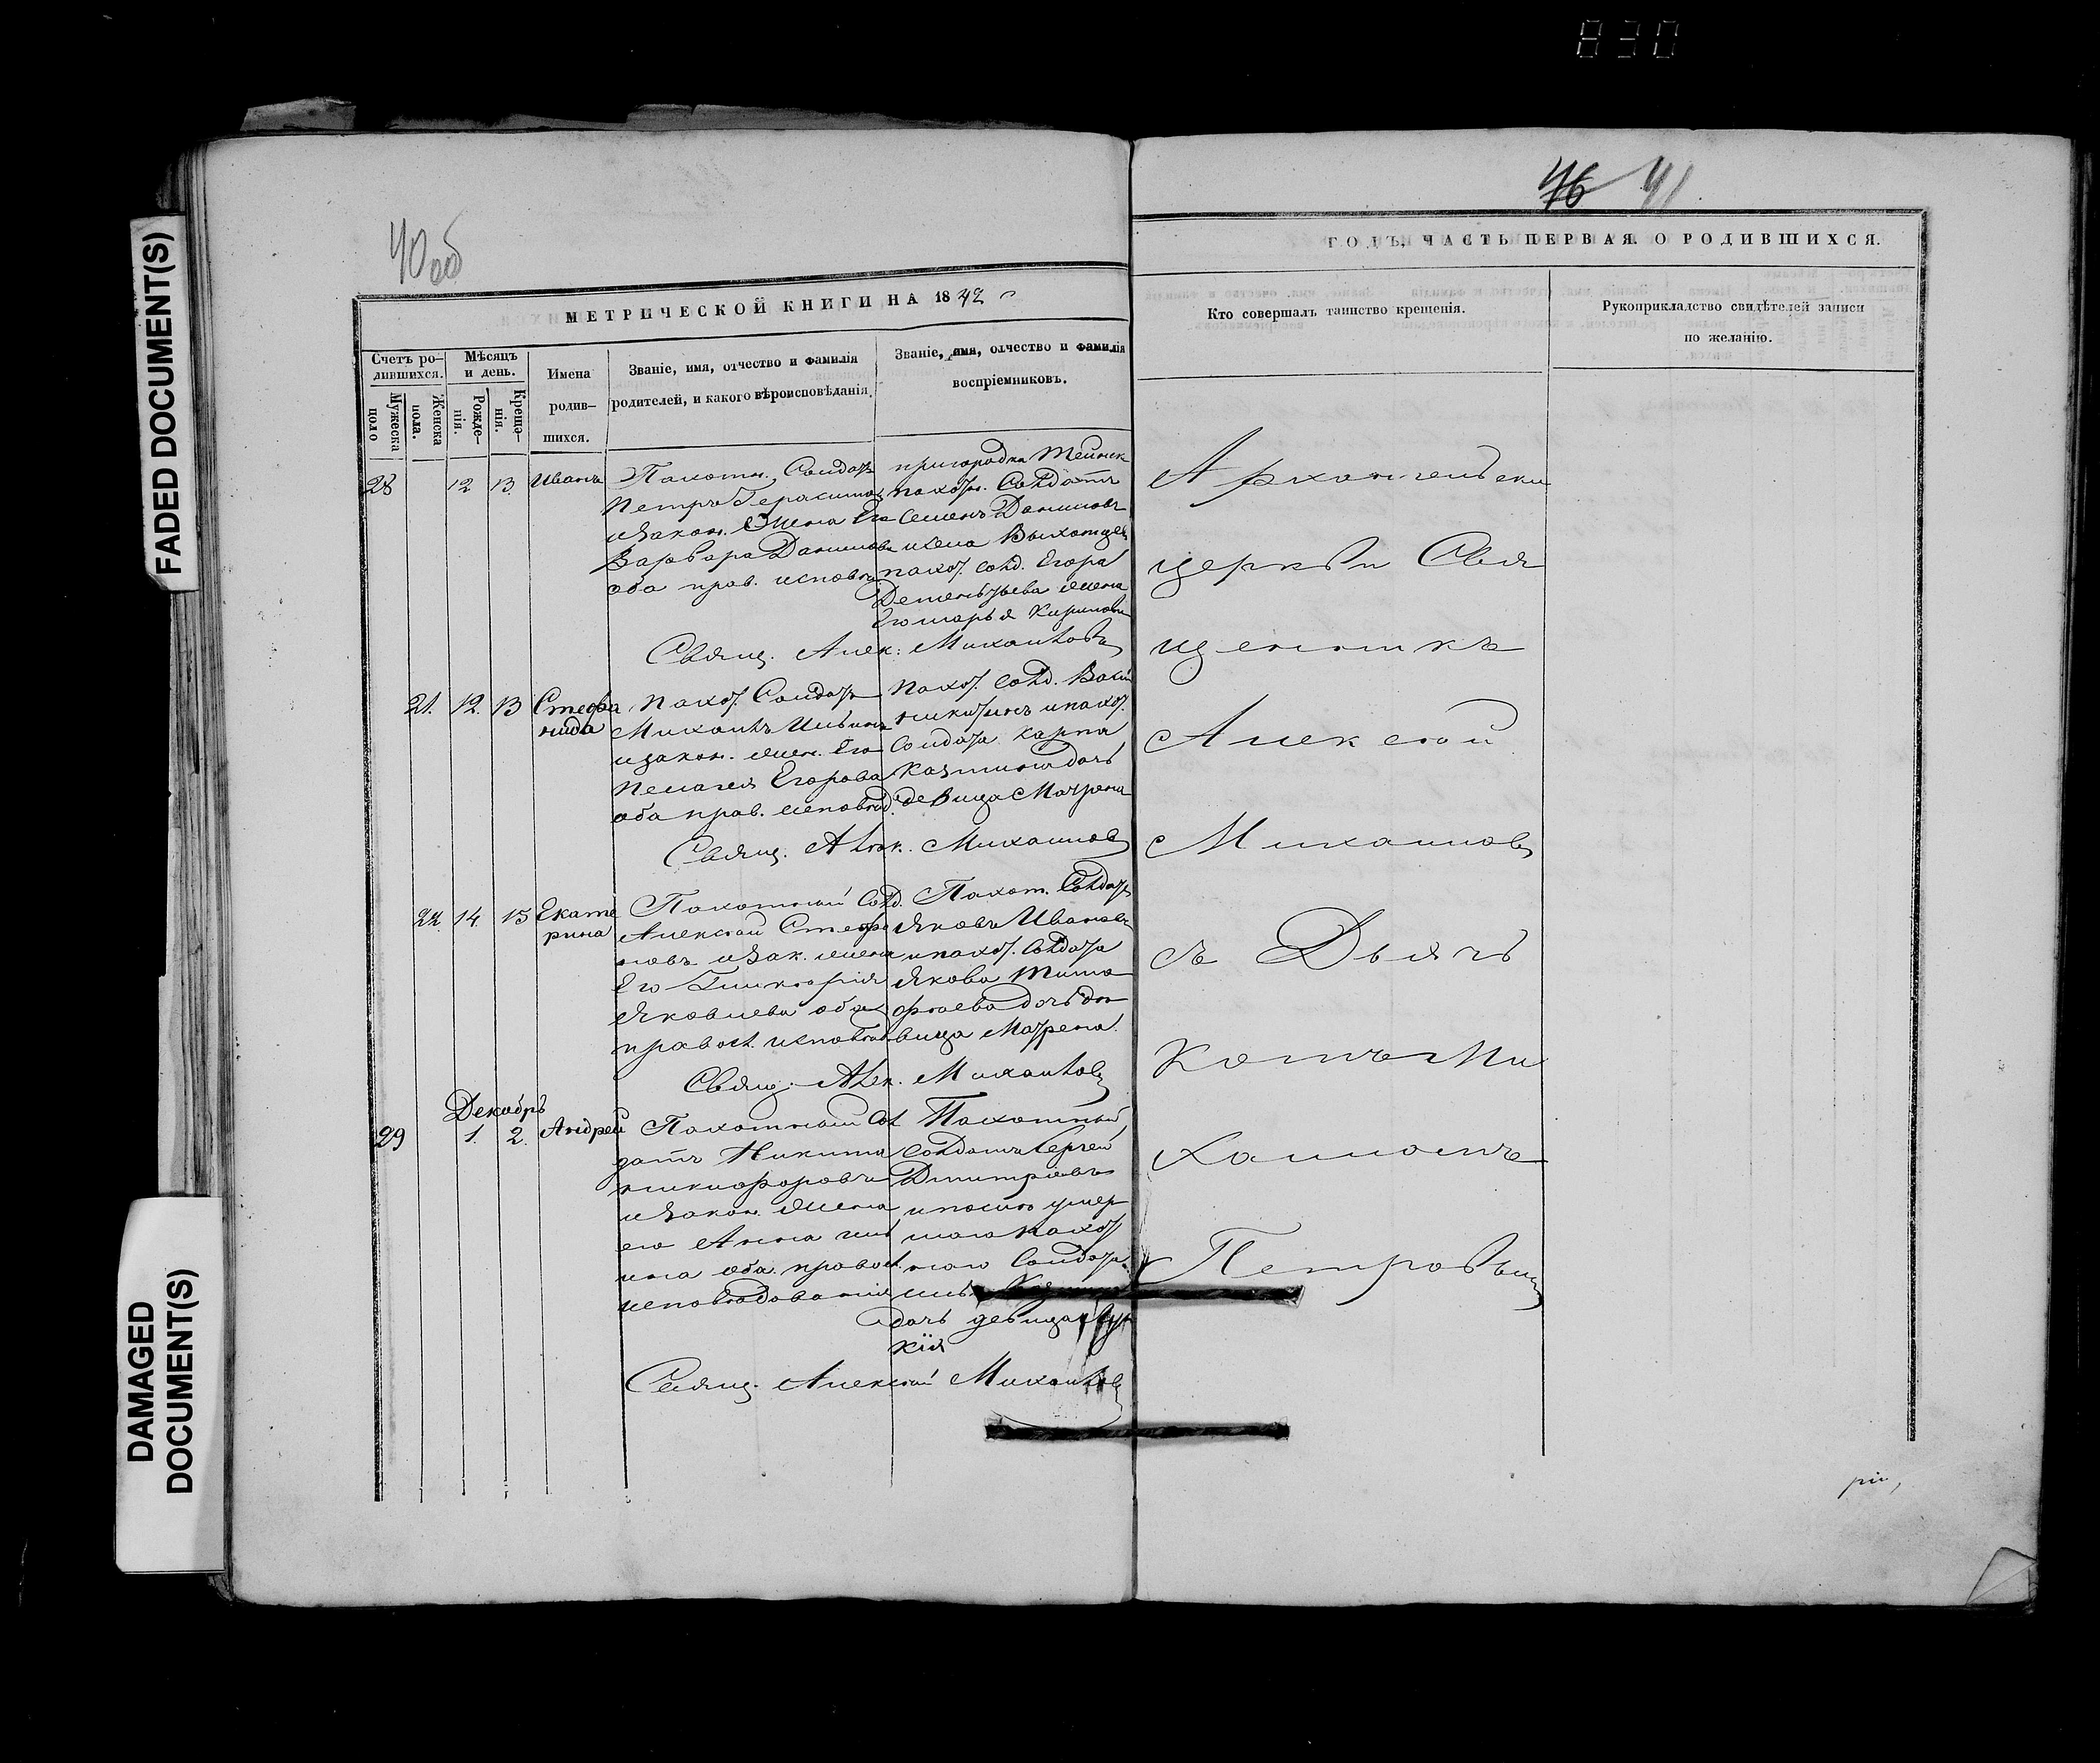 830
FADED DOCUMENT(S)
DAMAGED
DOCUMENT(S)
40об
МЕТРИЧЕСКОЙ КНИГИ НА 1842
Счетъ ро-
дившихся.
Мужеска
поло
Женска
пола.
Мѣсяцъ
и день.
Рожде-
нія.
Креще-
нія.
Имена
родив-
шихся.
Званіе, имя, отчество и фамилія
родителей, и какого вѣроисповѣданія.
Званіе, имя, отчество и фамилія
воспріемниковъ.
28 12 13 Иванъ
Пахотн. Солдатъ
Петръ Герасимов
и закон. Жена Его
Варвара Данилова
оба прав. исповѣд.
пригородка
пахотн. Солдатъ
Семенъ Даниловъ
пахот. солд. Егора
жена
Его Марья Кирилова
Свящ. Алек. Михаиловъ
21. 12. 13 Стефа
нида
Пахот. Солдатъ
Михаилъ Ильинъ
и закон. жен. Его
Пелагея Егорова
оба прав. исповѣд.
Пахот. Солд.
Никитинъ и пахот.
Солдата Карпа
Казмина дочь
девица Матрена
Свящ. Алек. Михаиловъ
22. 14. 15 Екате
рина
Пахотный Солд.
Алексѣй Стефа
новъ и зак. жена
Его Гликерія
Яковлева оба
правосл. исповѣд
Пахот. Солдатъ
Яковъ Ивановъ
и пахот. Солдата
Якова Тимо
фѣева дочь дѣ
вица Матрена.
Свящ. Алек. Михаиловъ
Декабрь
29 1. 2. Андрей
Пахотный Сол
датъ Никита
Никифоровъ
и закон. Жена
его Анна Иль
ина оба правосл.
исповѣдованія
Пахотный
солдатъ Сергей
Дмитріевъ
и послѣ умер
шаго пахот
наго Солдата
дочь девица
кія
Свящ. Алексѣй Михаиловъ
76 41
ГОДЪ, ЧАСТЬ ПЕРВАЯ О РОДИВШИХСЯ.
Кто совершалъ таинство крещенія.
Рукоприкладство свидѣтелей записи
по желанію.
Архангельски
церкви Свя
щенникъ
Алексѣй
Михаиловъ
съ Дьяч
комъ Ми
хаиломъ
Петровым